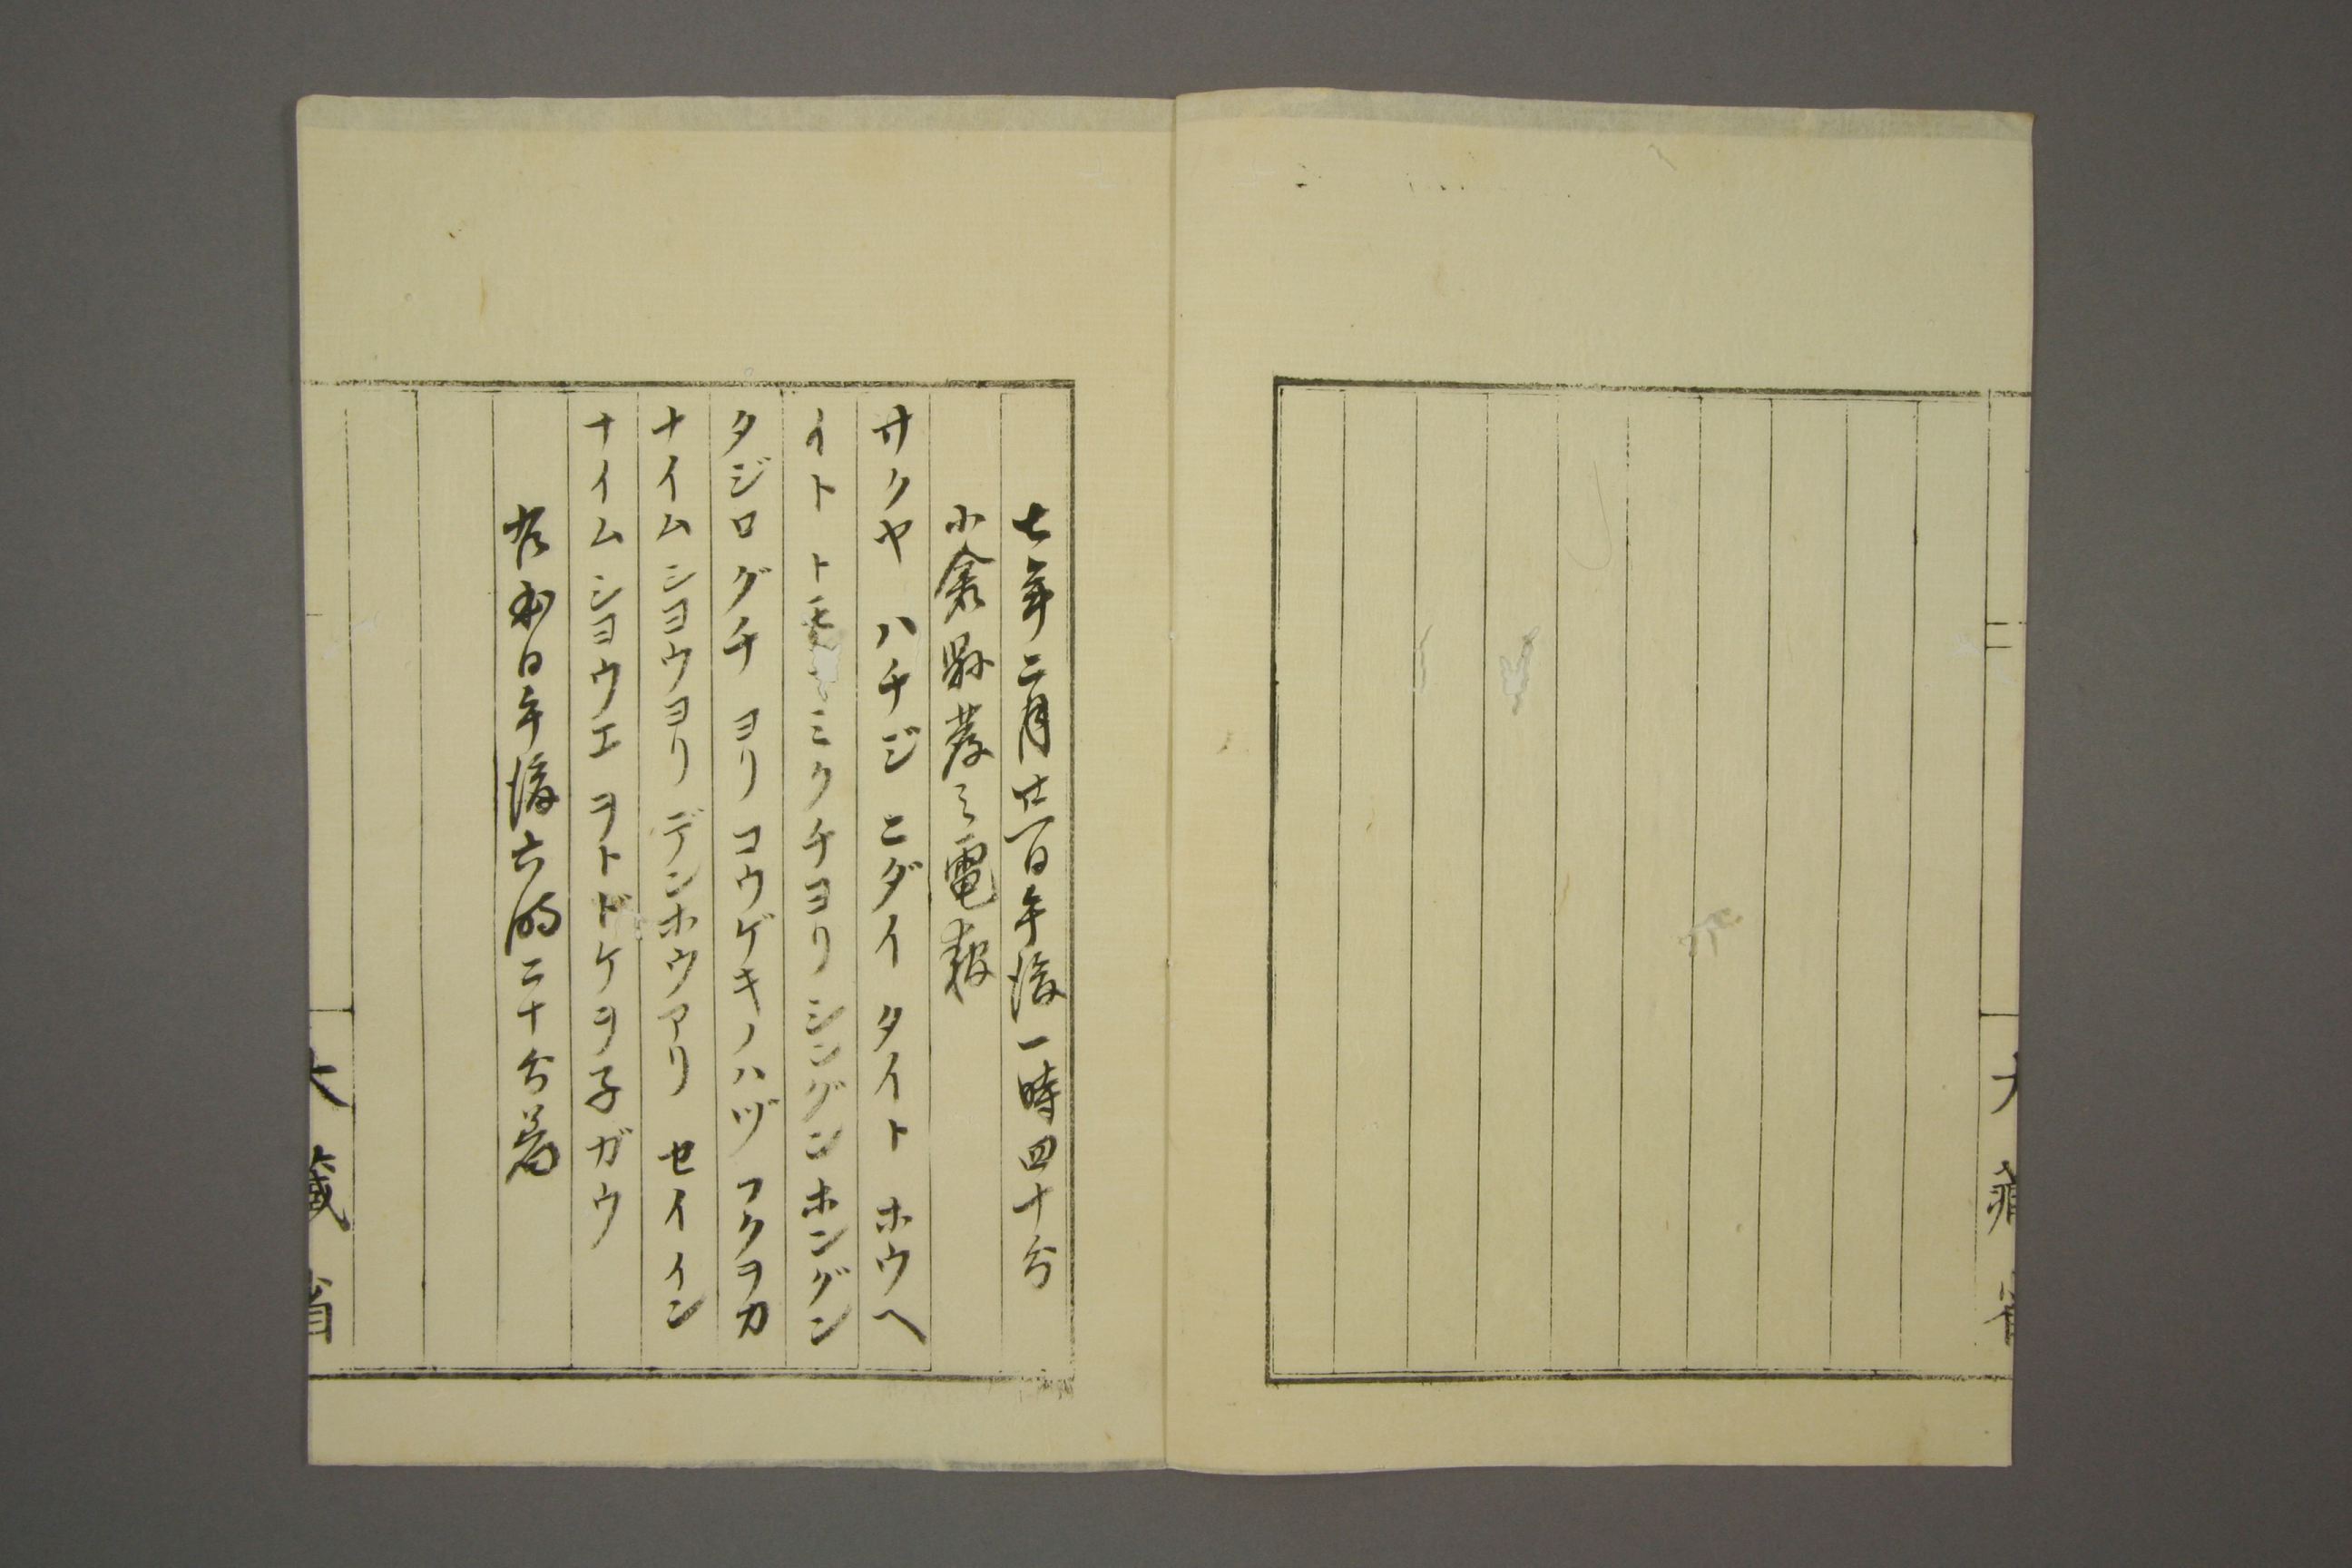 七年二月廿一日午後一時四十分
小倉縣發之電報
サクヤ ハチジ ニダイ タイト ホウヘ
イト トモ ミクチヨリ シングン ホングン
タジログチ ヨリ コウゲキノハヅ フクヲカ
ナイムシヨウヨリ デンホウアリ セイイン
ナイムシヨウエ ヲトドケヲ子ガウ
日午後六時二十分着
大藏省
大藏省